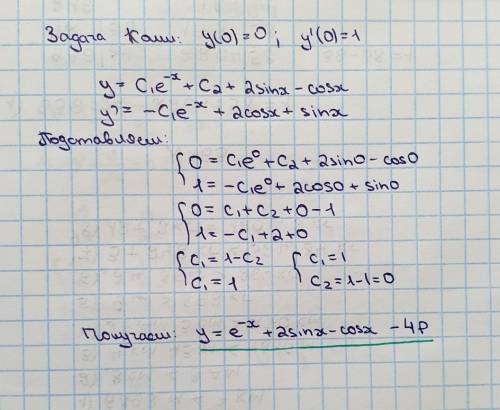 Задача Коши: y(0)=0; y'(0)=1
y = C₁e⁻ˣ + C₂ + 2sinx - cosx
y' = -C₁e⁻ˣ + 2cosx + sinx
Подставляем:
{0 = C₁e⁰ + C₂ + 2sin0 - cos0
{1 = -C₁e⁰ + 2cos0 + sin0
{0 = C₁ + C₂ + 0 - 1
{1 = -C₁ + 2 + 0
{C₁ = 1 - C₂ {C₁ = 1
{C₁ = 1 {C₂ = 1-1=0
Получаем: y = e⁻ˣ + 2sinx - cosx - ЧР